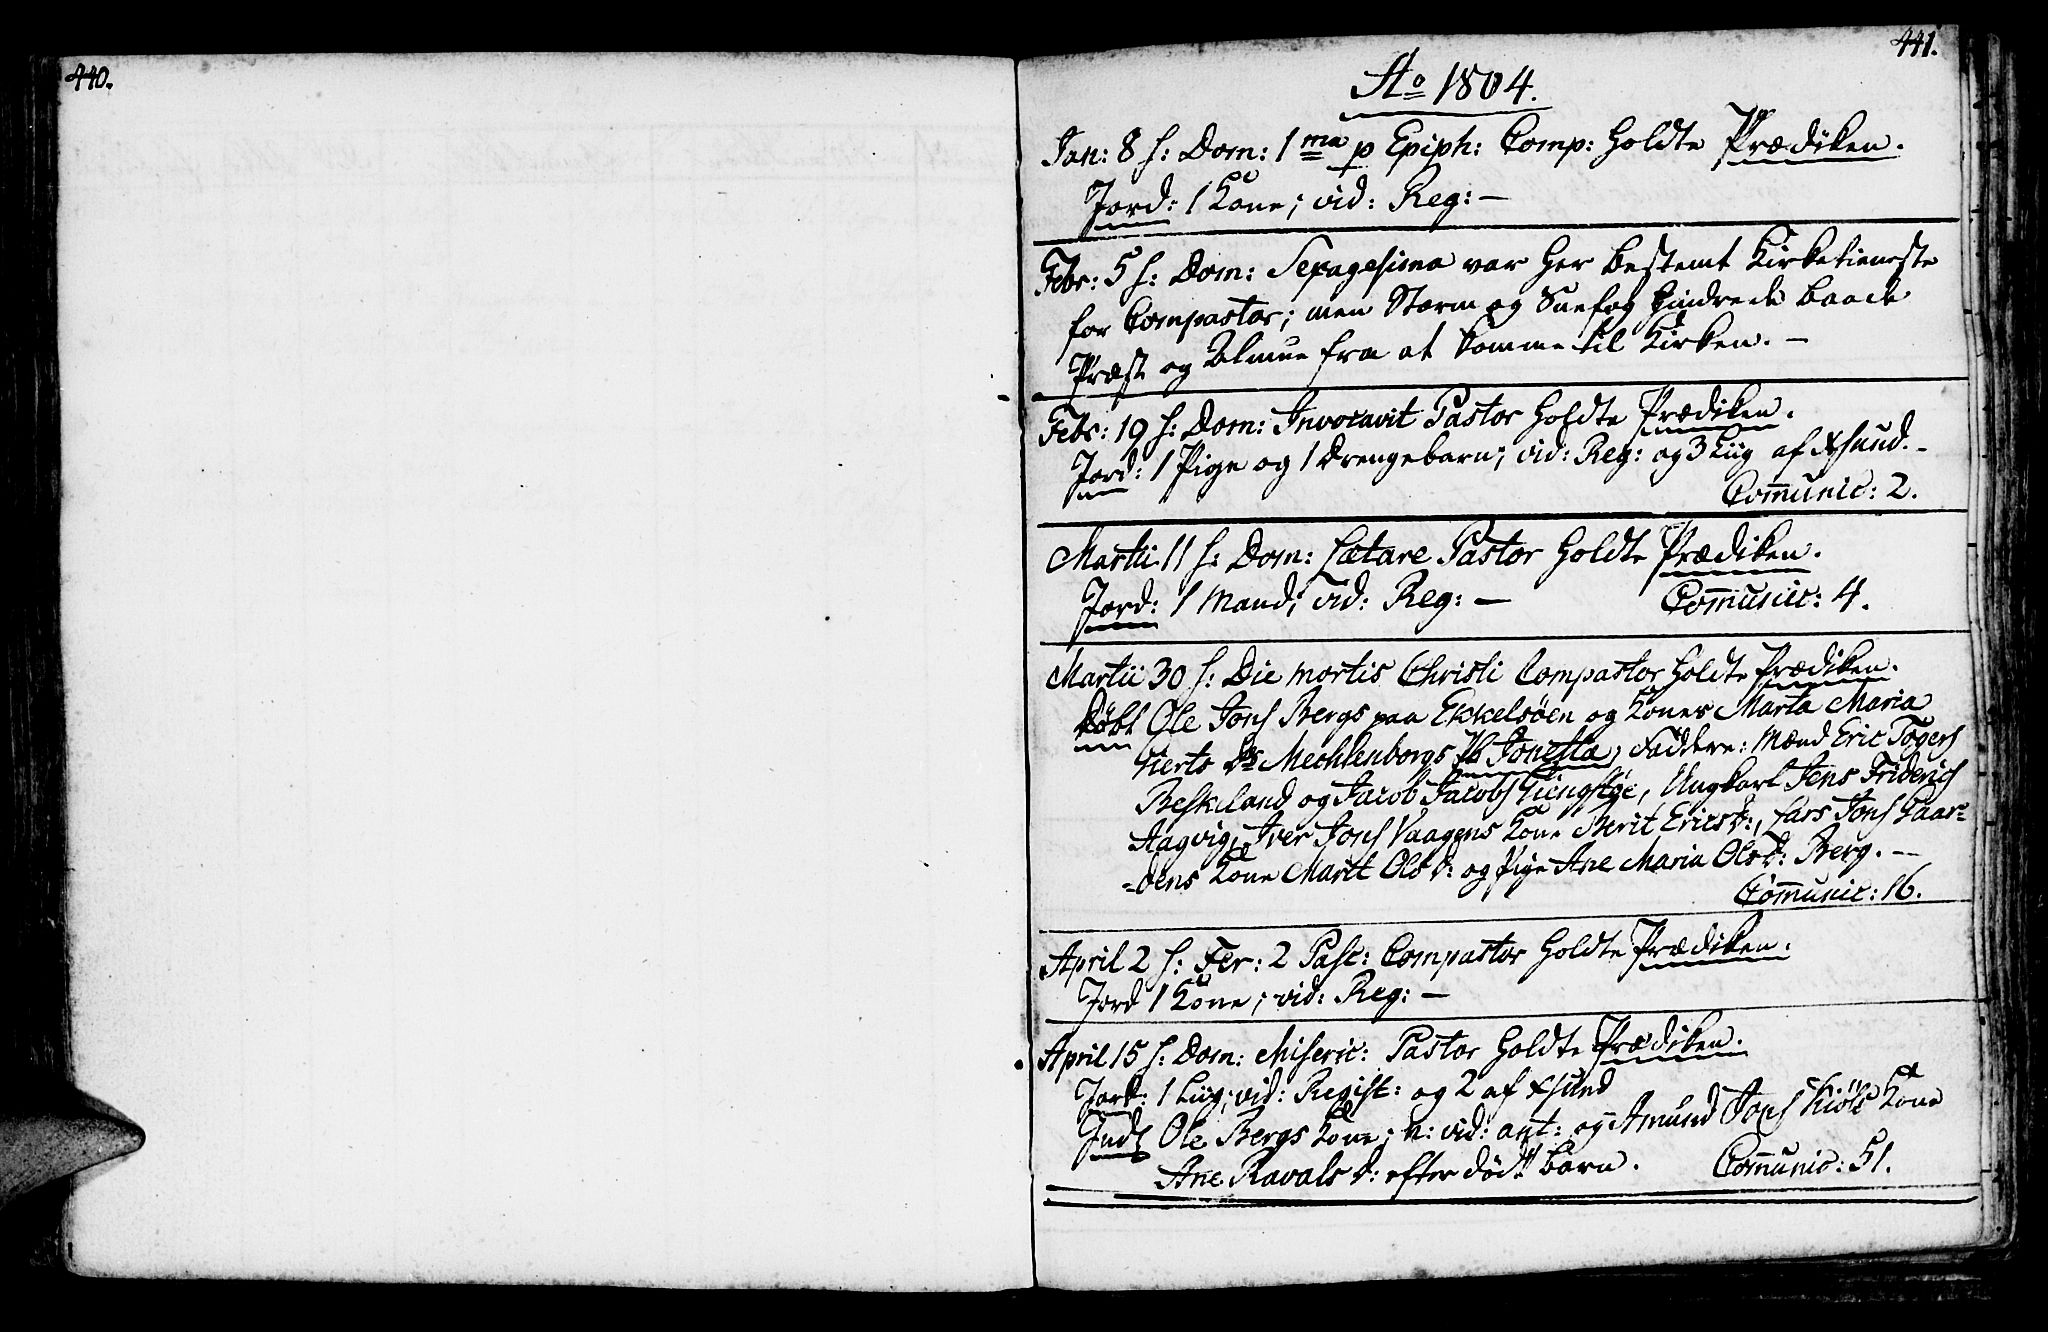 440.
441.
Ao 1804.
Jan: 8 s: Dom: 1ma p Epiph: Comp: holdte Prædiken.
Jord: 1 Kone; vid: Reg: —
Febr: 5 s: Dom: Sexagesima var her bestemt Kirketieneste
for Compastor; men Storm og Snefog hindrede baade
Præst og Almue fra at komme til Kirken. —
Febr: 19 s: Dom: Invocavit Pastor holdte Prædiken.
Jord: 1 Pige og 1 Drengebarn; vid: Reg: og 3 Liig af Xsund. -
Communic: 2.
Martii 11 s: Dom: Lætare Pastor holdte Prædiken.
Jord: 1 Mand; vid: Reg: —
Communic: 4.
Martii 30 s: Die mortis Christi Compastor holdte Prædiken.
Døbt Ole Jons Bergs paa Ekkelsøen og Kones Marta Maria
Mechlenborgs Pb Jonetta, Faddere: Mænd Eric Togers
Beskeland og Jacob Jacobs, Ungkarl Jens Friderich
Aagvig, Iver Jons Vaagens Kone Berit Ericsd:, Lars Jons Gaar-
-dens Kone Marit Olsd: og Pige Ane Maria Olsd: Berg. —
Communic: 16.
April 2 s: Fer: 2 Pasc: Compastor holdte Prædiken.
Jord 1 Kone; vid: Reg: —
April 15 s: Dom: Miseric: Pastor holdte Prædiken.
Jord: 1 Liig; vid: Regist: og 2 af Xsund
Indl Ole Bergs Kone; n: vid: ant: og Amund Jons Kiöls Kone
Ane Ravalsd: efter død barn.
Communic: 51.